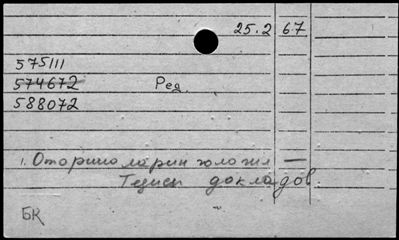 25.2 67
575111
574672 Ред.
588072
1. Оториноларингология —
Тезисы докладов.
БК